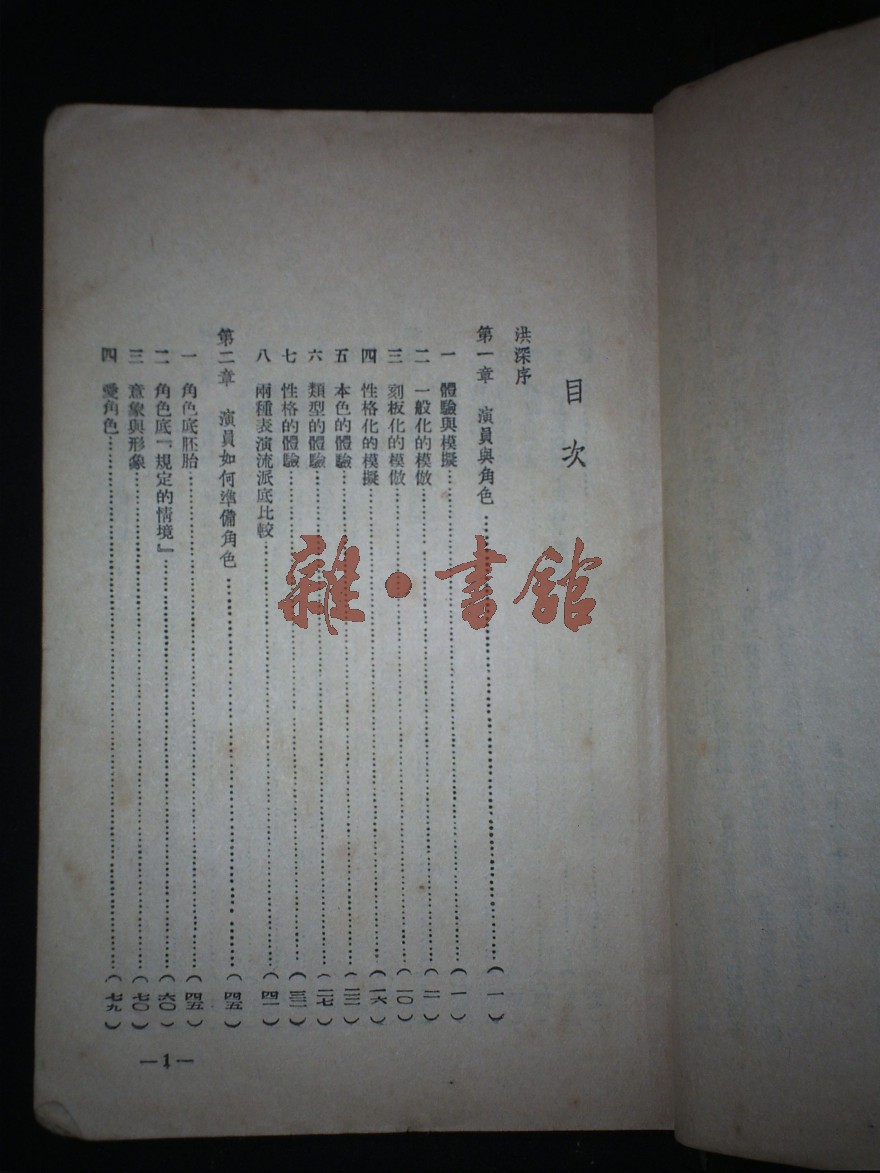 目次
洪深序
第一章 演員與角色……………(一)
一 體驗與模擬……………(一)
二 一般化的模倣……………(二)
三 刻板化的模倣……………(一〇)
四 性格化的模擬……………(一六)
五 本色的體驗……………(二三)
六 類型的體驗……………(二七)
七 性格的體驗……………(三二)
八 兩種表演流派底比較……………(四一)
第二章 演員如何準備角色……………(四五)
一 角色底胚胎……………(四五)
二 角色底『規定的情境』……………(六〇)
三 意象與形象……………(七〇)
四 愛角色……………(七九)
—1—
雜·書館